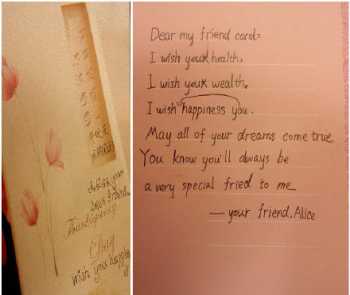 Thanksgiving
wish you happy
Dear my friend carol:
I wish your health.
I wish your wealth.
I wish happiness you.
May all of your dreams come true
You know you'll always be
a very special fried to me
— your friend, Alice